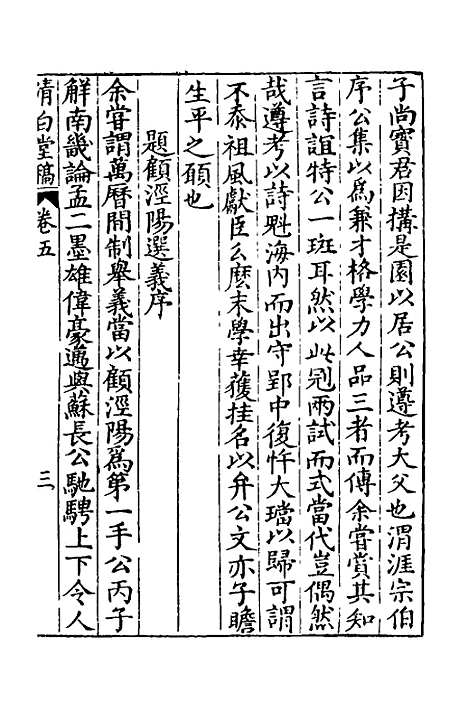 子尚寶君因搆是園以居公則遵考大父也渭涯宗伯
序公集以爲兼才格學力人品三者而傳余嘗賞其知
言詩誼特公一班耳然以此冠兩試而式當代豈偶然
哉遵考以詩魁海内而出守郢中復忤大璫以歸可謂
不忝祖風獻臣么麽末學幸獲挂名以弁公文亦子瞻
生平之願也
題顧涇陽選義序
余甞謂萬曆間制舉義當以顧涇陽爲第一手公丙子
解南畿論孟二墨雄偉豪邁與蘇長公馳騁上下今人
清白堂稿
卷五
三